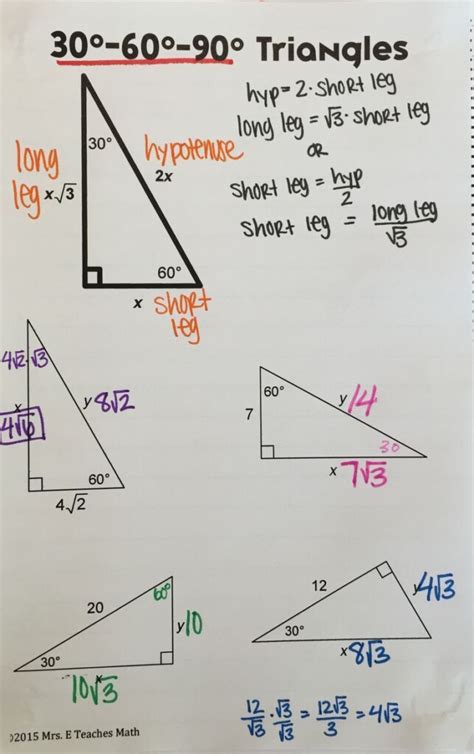 30°-60°-90° Triangles
hyp = 2 · short leg
long leg = √3 · short leg
OR
short leg = hyp/2
short leg = long leg/√3
long leg
x√3
30°
hypotenuse
2x
60°
x
short leg
4√2 · √3
x
4√6
y 8√2
60°
4√2
7
60°
y 14
30
x 7√3
20
60°
y 10
30°
x
10√3
12
y 4√3
30°
x 8√3
12/√3 · √3/√3 = 12√3/3 = 4√3
©2015 Mrs. E Teaches Math